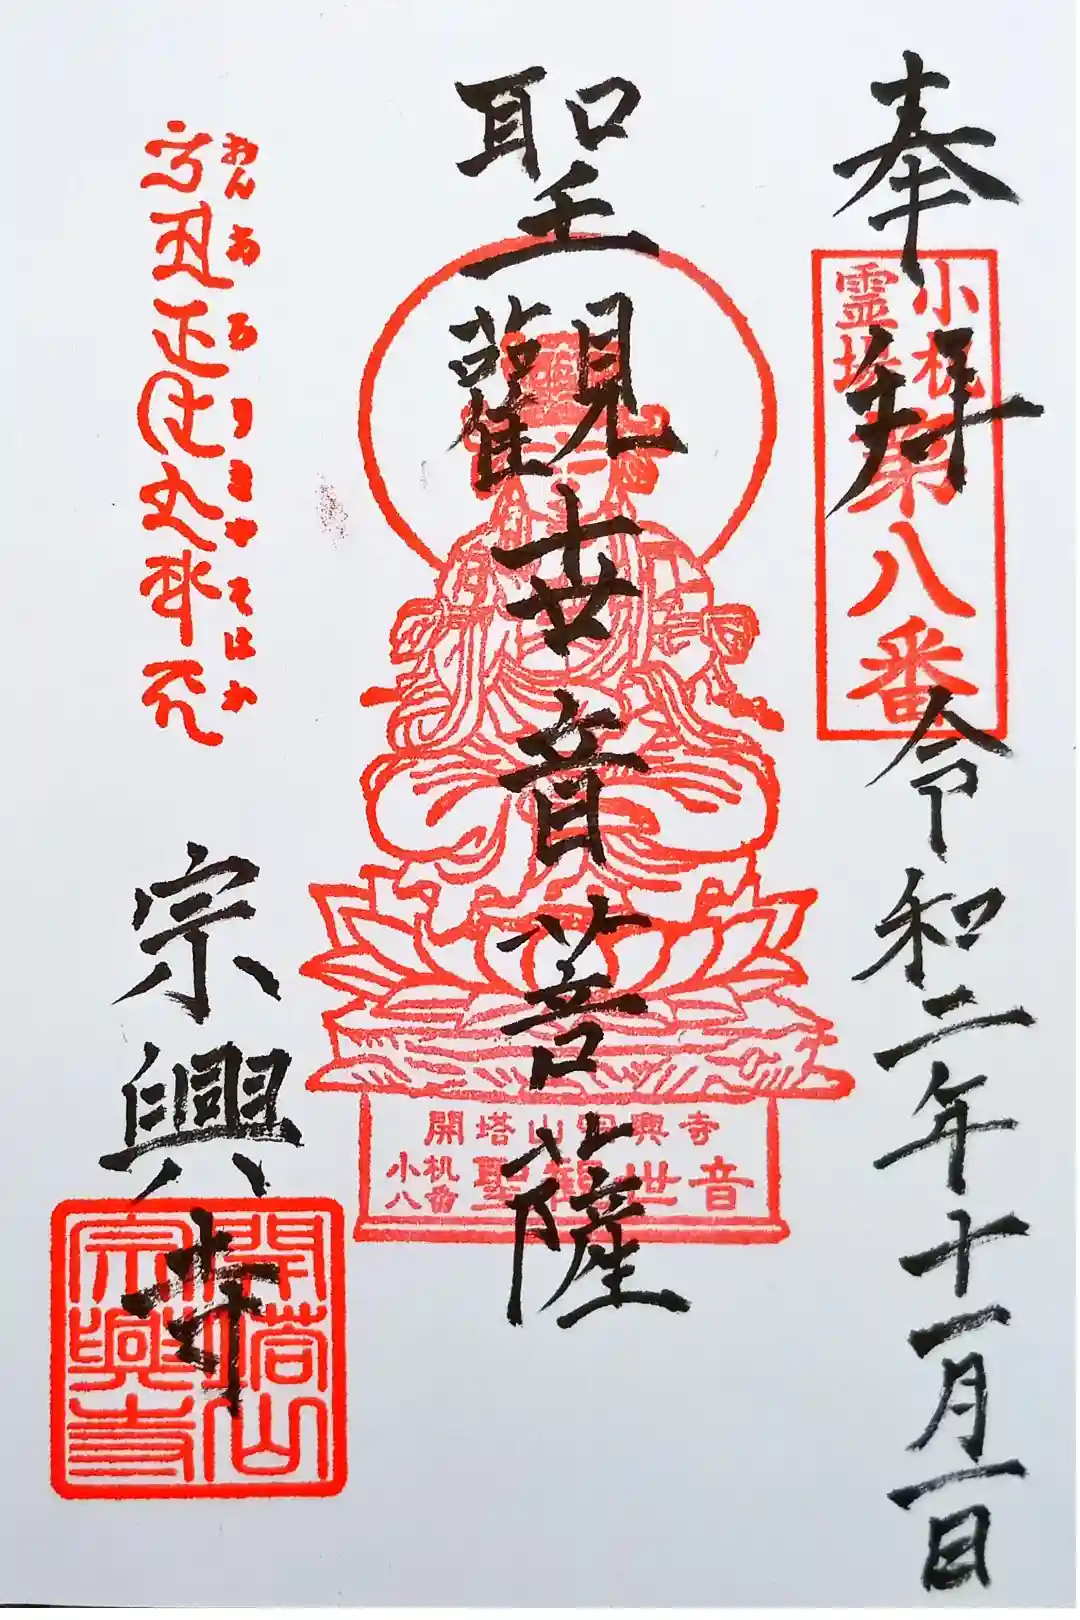 奉拝
令和二年十一月一日
小机
霊場
第八番
聖觀世音菩薩
開塔山宗興寺
小机
八番
聖観世音
おん あ ろ り き や そ は か
宗興寺
開塔山
宗興寺